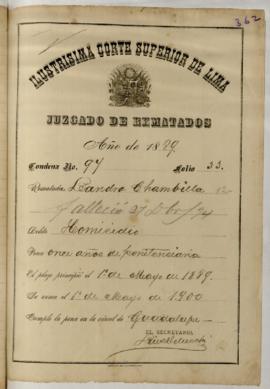 362
ILUSTRISIMA CORTE SUPERIOR DE LIMA
JUZGADO DE REMATADOS
Año de 1889
Condena No. 97 Folio 33.
Rematado, Leandro Chambilla
Falleció 27
Delito Homicidio
Pena once años de penitenciaria
El plazo principió el 1º de Mayo de 1889.
Se vence el 1º de Mayo de 1900
Cumple la pena en la cárcel de Guadalupe
EL SECRETARIO,